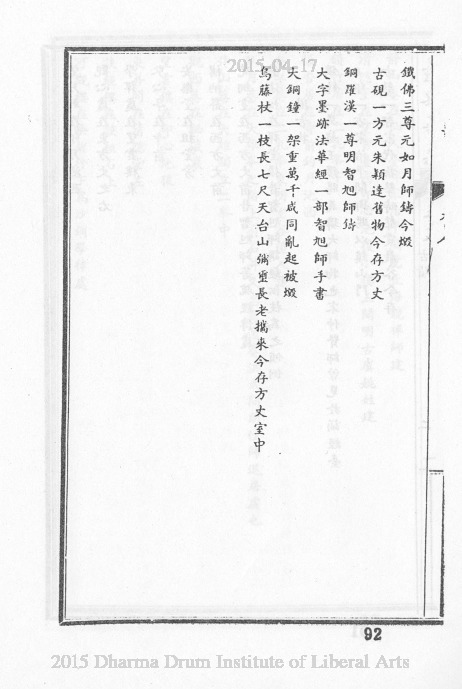 2015-04-17
鐵佛三尊元如月師鑄今燬
古硯一方元朱穎達舊物今存方丈
銅羅漢一尊明智旭師鑄
大字墨跡法華經一部智旭師手書
大銅鐘一架重萬千咸同亂起被燬
烏藤杖一枝長七尺天台山 長老攜來今存方丈室中
92
2015 Dharma Drum Institute of Liberal Arts